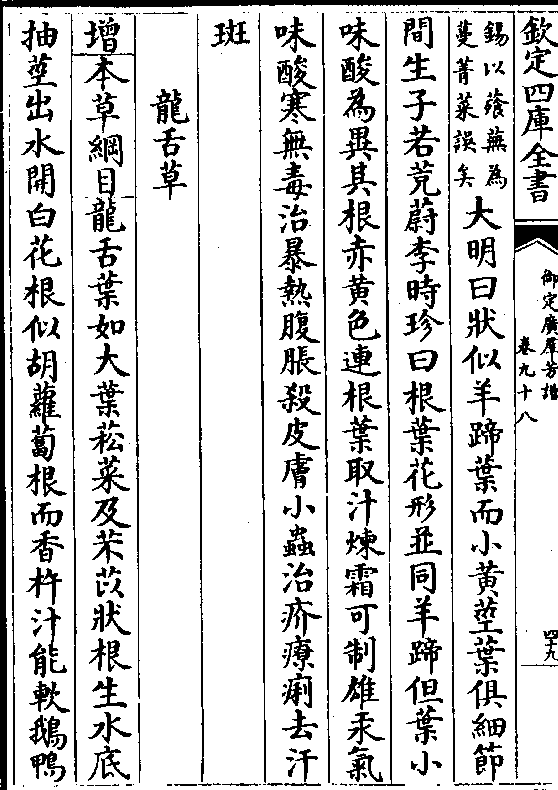 欽定四庫全書
御定廣羣芳譜
卷九十八
四十九
錫以蘈蕪為
蔓菁菜誤矣
大明曰狀似羊蹄葉而小黄莖葉俱細節
間生子若茺蔚李時珍曰根葉花形並同羊蹄但葉小
味酸為異其根赤黄色連根葉取汁煉霜可制雄汞氣
味酸寒無毒治暴熱腹脹殺皮膚小蟲治疥療痢去汗
斑
龍舌草
增本草綱目龍舌葉如大葉菘菜及芣苡狀根生水底
抽莖出水開白花根似胡蘿蔔根而香杵汁能軟鵝鴨